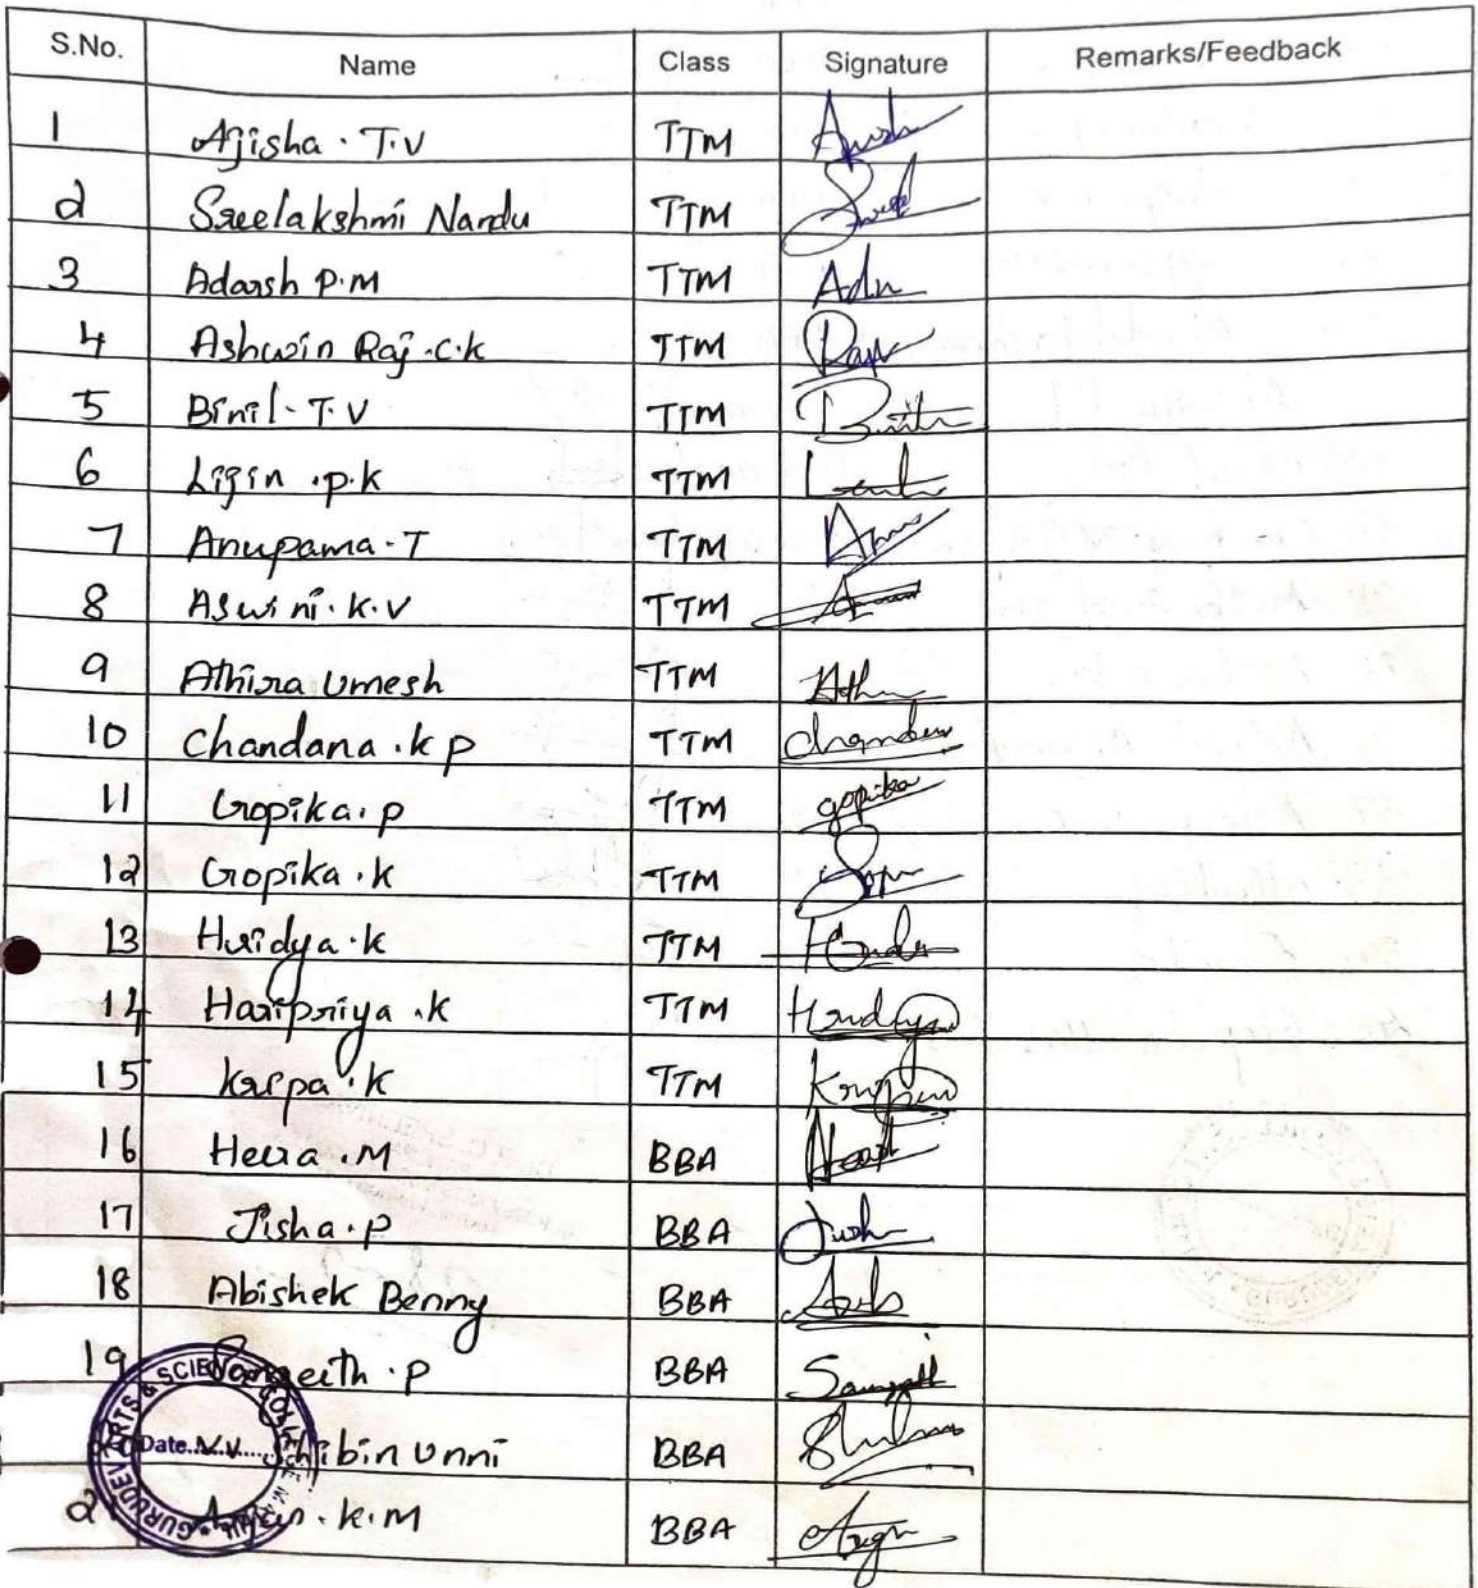 S.No. Name Class Signature Remarks/Feedback
1 Ajisha . T.V TTM
2 Sreelakshmi Nandu TTM
3 Adarsh P.M TTM
4 Ashwin Raj .C.K TTM
5 Binil . T.V TTM
6 Lijin .P.K TTM
7 Anupama . T TTM
8 Aswini . K.V TTM
9 Athira Umesh TTM
10 Chandana . K P TTM
11 Gopika . P TTM gopika
12 Gopika . K TTM
13 Hridya . K TTM
14 Haripriya . K TTM
15 Kripa . K TTM
16 Heera . M BBA
17 Jisha . P BBA
18 Abishek Benny BBA
19 Sangeeth . P BBA
V.V. Shibin Unni BBA
K.M BBA
GURUDEV ARTS & SCIENCE COLLEGE
Date